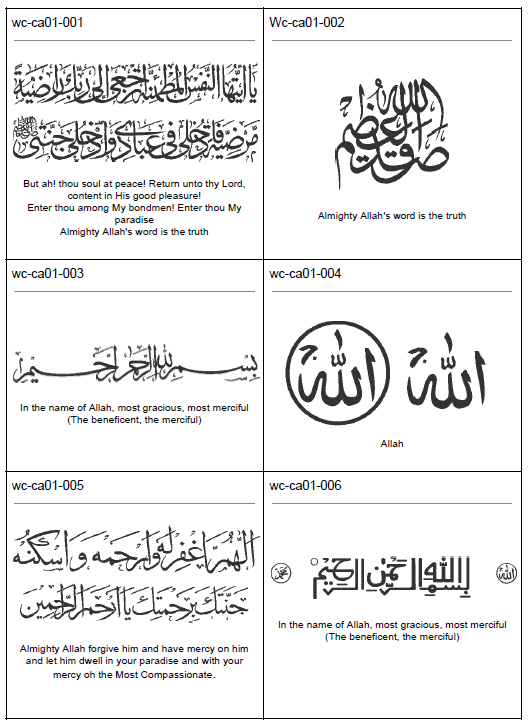 wc-ca01-001
يا أيتها النفس المطمئنة ارجعي إلى ربك راضية
مرضية فادخلي في عبادي وادخلي جنتي
But ah! thou soul at peace! Return unto thy Lord,
content in His good pleasure!
Enter thou among My bondmen! Enter thou My
paradise
Almighty Allah's word is the truth
Wc-ca01-002
صدق الله العظيم
Almighty Allah's word is the truth
wc-ca01-003
بسم الله الرحمن الرحيم
In the name of Allah, most gracious, most merciful
(The beneficent, the merciful)
wc-ca01-004
الله الله
Allah
wc-ca01-005
اللهم اغفر له وارحمه واسكنه
جنتك برحمتك يا ارحم الراحمين
Almighty Allah forgive him and have mercy on him
and let him dwell in your paradise and with your
mercy oh the Most Compassionate.
wc-ca01-006
محمد بسم الله الرحمن الرحيم الله
In the name of Allah, most gracious, most merciful
(The beneficent, the merciful)